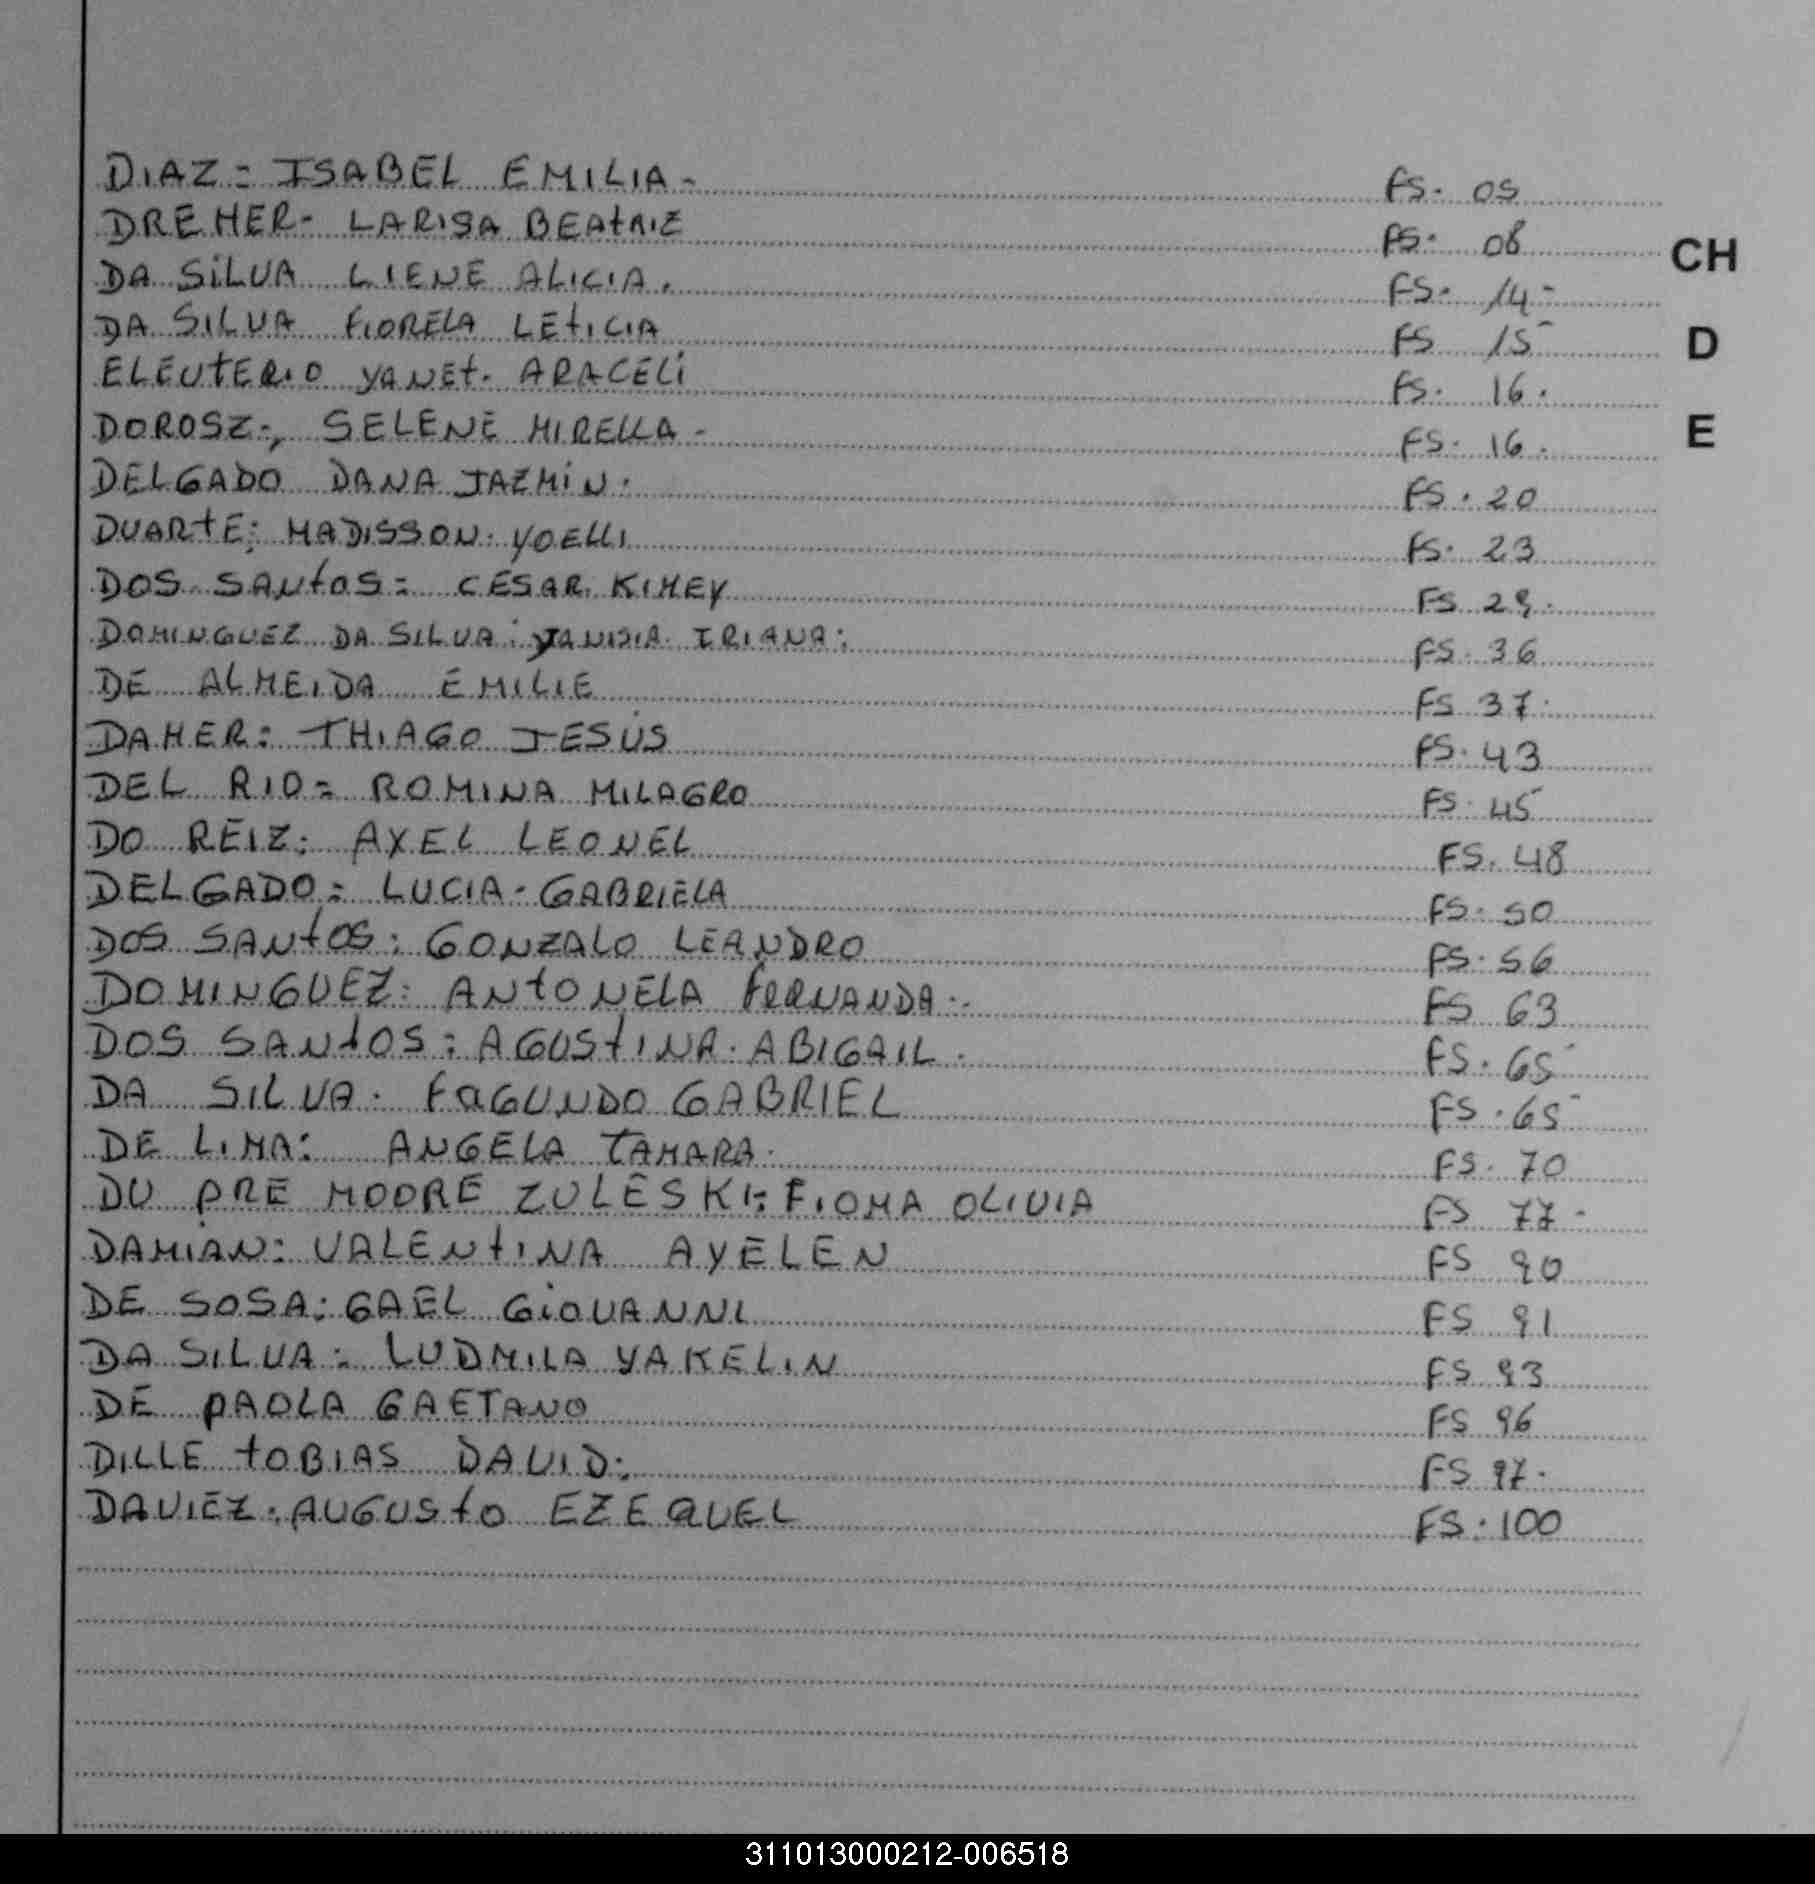 DIAZ= ISABEL EMILIA- FS. 05
DREHER- LARISA BEAtRIZ FS. 08
CH
DA SiLVA LIENE ALICIA. FS. 14-
DA SILVA FIORELA LEtICIA FS 15
D
ELEUTERIO YANEt. ARACELi FS. 16.
DOROSZ-, SELENE MIRELLA- FS. 16.
E
DELGADO DANA JAZMiN. FS. 20
DUARtE: MADISSON. YOELLI FS. 23
DOS SANtOS= CESAR KIMEY FS 29.
DOMINGUEZ DA SILVA: IRIANA: FS. 36
DE ALMEIDA EMILIE FS 37.
DAHER: THIAGO JESUS FS. 43
DEL RIO= ROMINA MILAGRO FS. 45
DO REIZ: AXEL LEONEL FS. 48
DELGADO= LUCIA- GABRIELA FS. 50
DOS SANtOS: GONZALO LEANDRO FS. 56
DOMINGUEZ: ANtONELA FERNANDA.. FS 63
DOS SANtOS: AGUStINA. ABIGAIL. FS. 65
DA SILVA. FaGUNDO GABRIEL FS. 65
DE LIMA: ANGELA TAMARA. FS. 70
DU PRE MOORE ZULESKI: FIOMA OLIVIA FS 77.
DAMIAN: VALENtINA AYELEN FS 90
DE SOSA: GAEL GiOVANNI FS 91
DA SILVA= LUDMILA YAKELIN FS 93
DE PAOLA GAETANO FS 96
DILLE tOBIAS DAVID: FS 97.
DAVIEZ: AUGUStO EZEQUEL FS: 100
311013000212-006518